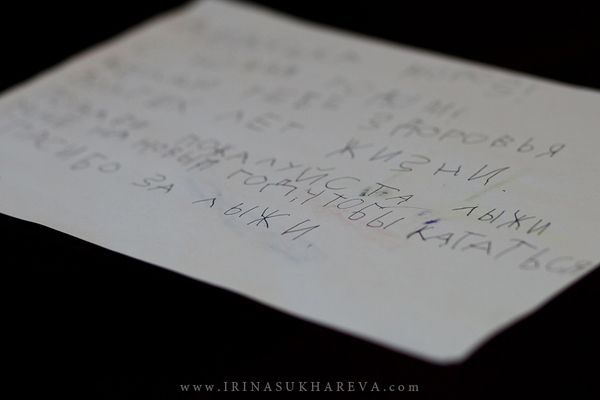 МОРОЗ!
ЖЕЛАЮ ТЕБЕ ЗДОРОВЬЯ
ЛЕТ ЖИЗНИ.
ПОЖАЛУЙСТА ЛЫЖИ
НА НОВЫЙ ГОД, ЧТОБЫ КАТАТЬСЯ
СПАСИБО ЗА ЛЫЖИ.
www.IRINASUKHAREVA.com